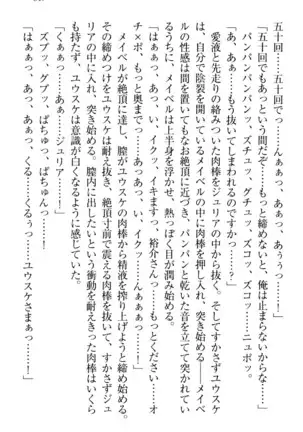 五十回……五十回でっ……んぁっ、あっ、あぁうっ……！」
「五十回でもあっという間だぞ……もっと締めないと、俺は止まらないからなっ」
パンパンパンッ、ズチュッ、グチュッ、ズコッ、ズコッ……ニュポッ。
「あ、あぁ……もう抜いてしまわれるのですかっ……？」
愛液と先走りの絡みついた肉棒をジュリアの中から抜く。そしてすかさずユウスケ
は、自分で陰裂を開いて待つメイベルの中に肉棒を押し入れ、突き始める――メイベ
ルの性感は間を置いてもなお絶頂に近づき、パンパンと乾いた音を立てて突かれてい
るうちに、メイベルは上半身を浮かせ、熱っぽく目が潤み始める。
「はぁっ、あっ、いっ、イクッ……イキますっ、裕介さんっ……もっとくださいっ…オ
チ×ポ、もっと奥まで……あっ、い、イクッ……んぁぁぁっ……！」
メイベルが絶頂に達し、膣がユウスケの肉棒から精液を搾り上げようと締め始める。
その締めつけをユウスケは耐え抜き、絶頂寸前で震える肉棒を抜いて、すかさずジュ
リアの中に入れ、突き始める。膣内に出したいという衝動を耐えきった肉棒はいくら
も持たず、ユウスケは意識が白くなるように感じていた。
「くぁぁっ……あぁっ……ジュリア……！」
ズブッ、グブッ、ぱちゅっ、ぱちゅんっ。
「はぁぁっ、あっ、あぁっ、くる、くるぅっ……ユウスケさまぁっ……！」